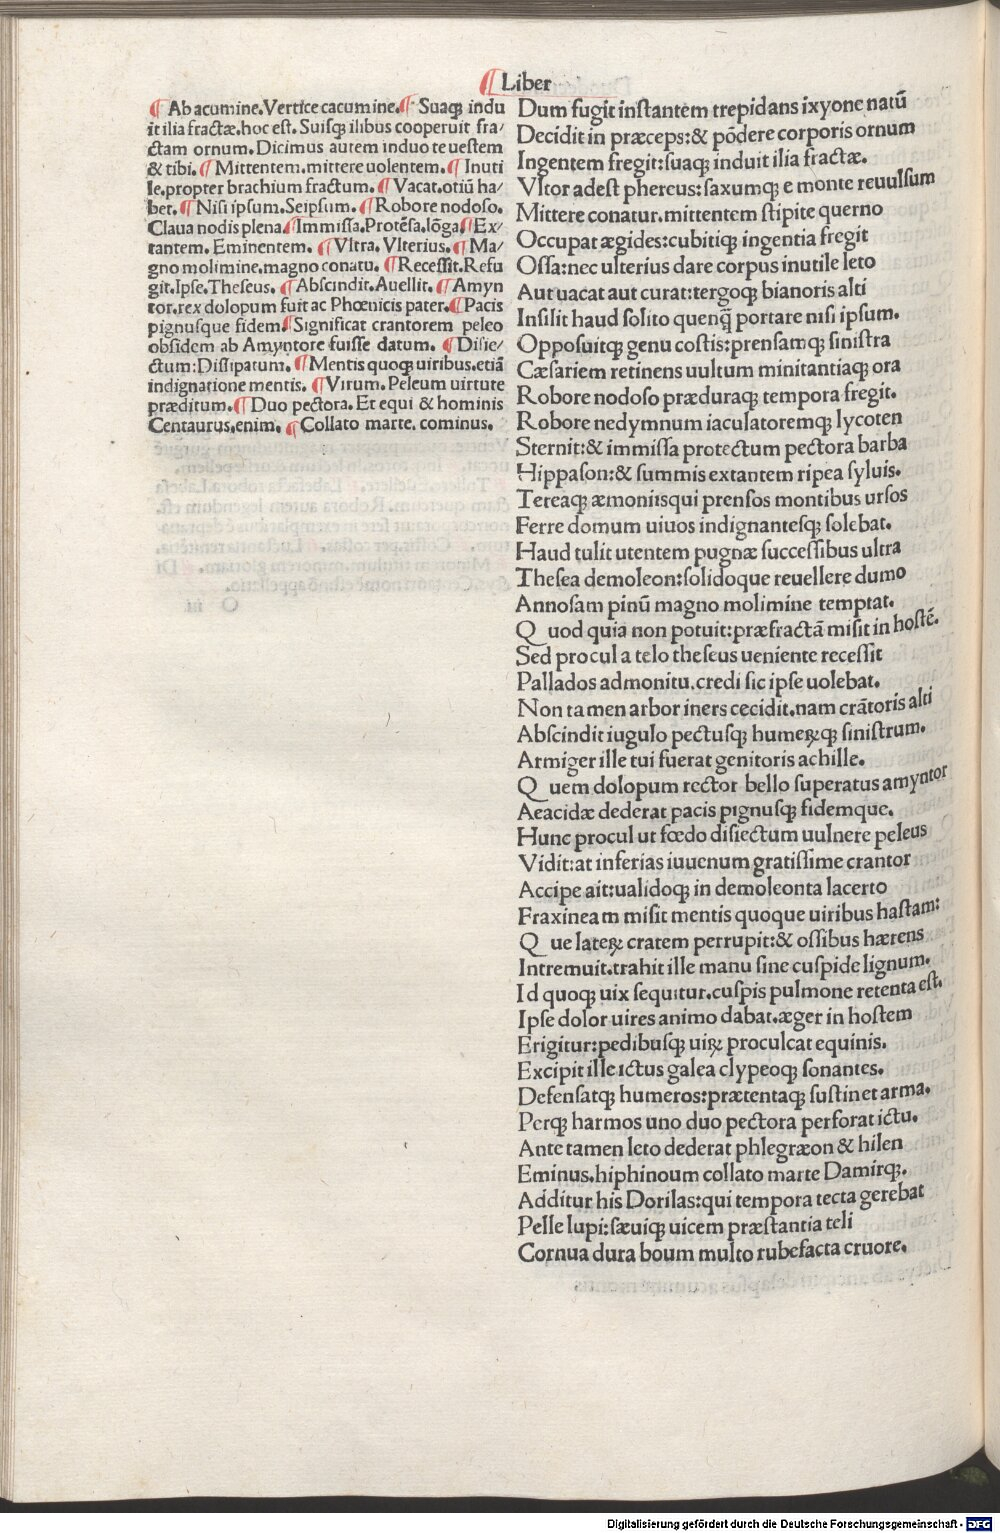 ¶ Liber
¶ Ab acumine. Vertice cacumine. ¶ Suaqꝫ indu
it ilia fractæ. hoc est. Suisqꝫ ilibus cooperuit fra/
ctam ornum. Dicimus autem induo te uestem
& tibi. ¶ Mittentem. mittere uolentem. ¶ Inuti
le. propter brachium fractum. ¶ Vacat. otiū ha/
bet. ¶ Nisi ipsum. Seipsum. ¶ Robore nodoso.
Claua nodis plena. ¶ Immissa. Protēsa. lōga. ¶ Ex/
tantem. Eminentem. ¶ Vltra. Vlterius. ¶ Ma/
gno molimine. magno conatu. ¶ Recessit. Refu
git. Ipse. Theseus. ¶ Abscindit. Auellit. ¶ Amyn
tor. rex dolopum fuit ac Phœnicis pater. ¶ Pacis
pignusque fidem. ¶ Significat crantorem peleo
obsidem ab Amyntore fuisse datum. ¶ Disie/
ctum: Dissipatum. ¶ Mentis quoqꝫ uiribus. etiā
indignatione mentis. ¶ Virum. Peleum uirtute
præditum. ¶ Duo pectora. Et equi & hominis
Centaurus. enim. ¶ Collato marte. cominus.
Dum fugit instantem trepidans ixyone natū
Decidit in præceps: & pōdere corporis ornum
Ingentem fregit: suaqꝫ induit ilia fractæ.
Vltor adest phereus: saxumqꝫ e monte reuulsum
Mittere conatur. mittentem stipite querno
Occupat ægides: cubitiqꝫ ingentia fregit
Ossa: nec ulterius dare corpus inutile leto
Aut uacat aut curat: tergoqꝫ bianoris alti
Insilit haud solito quenq̄ portare nisi ipsum.
Opposuitqꝫ genu costis: prensamqꝫ sinistra
Cæsariem retinens uultum minitantiaqꝫ ora
Robore nodoso præduraqꝫ tempora fregit.
Robore nedymnum iaculatoremqꝫ lycoten
Sternit: & immissa protectum pectora barba
Hippason: & summis extantem ripea syluis.
Tereaqꝫ æmoniisqui prensos montibus ursos
Ferre domum uiuos indignantesqꝫ solebat.
Haud tulit utentem pugnæ successibus ultra
Thesea demoleon: solidoque reuellere dumo
Annosam pinū magno molimine temptat.
Q uod quia non potuit: præfractā misit in hostē.
Sed procul a telo theseus ueniente recessit
Pallados admonitu. credi sic ipse uolebat.
Non tamen arbor iners cecidit. nam crātoris alti
Abscindit iugulo pectusqꝫ humeꝝqꝫ sinistrum.
Armiger ille tui fuerat genitoris achille.
Q uem dolopum rector bello superatus amyntor
Aeacidæ dederat pacis pignusqꝫ fidemque.
Hunc procul ut fœdo disiectum uulnere peleus
Vidit: at inferias iuuenum gratissime crantor
Accipe ait: ualidoqꝫ in demoleonta lacerto
Fraxineam misit mentis quoque uiribus hastam:
Q ue lateꝝ cratem perrupit: & ossibus hærens
Intremuit. trahit ille manu sine cuspide lignum.
Id quoqꝫ uix sequitur. cuspis pulmone retenta est.
Ipse dolor uires animo dabat. æger in hostem
Erigitur: pedibusqꝫ uiꝝ proculcat equinis.
Excipit ille ictus galea clypeoqꝫ sonantes.
Defensatqꝫ humeros: prætentaqꝫ sustinet arma.
Perqꝫ harmos uno duo pectora perforat ictu.
Ante tamen leto dederat phlegræon & hilen
Eminus. hiphinoum collato marte Damirqꝫ.
Additur his Dorilas: qui tempora tecta gerebat
Pelle lupi: sæuiqꝫ uicem præstantia teli
Cornua dura boum multo rubefacta cruore.
Digitalisierung gefördert durch die Deutsche Forschungsgemeinschaft - DFG